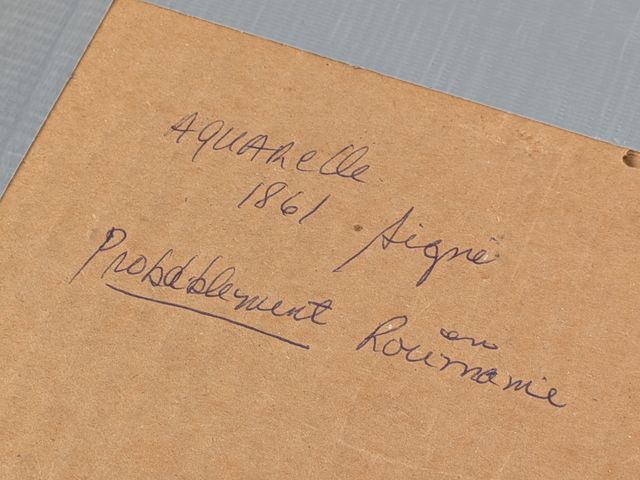 AQUARelle
1861 signé
Probablement en Roumanie